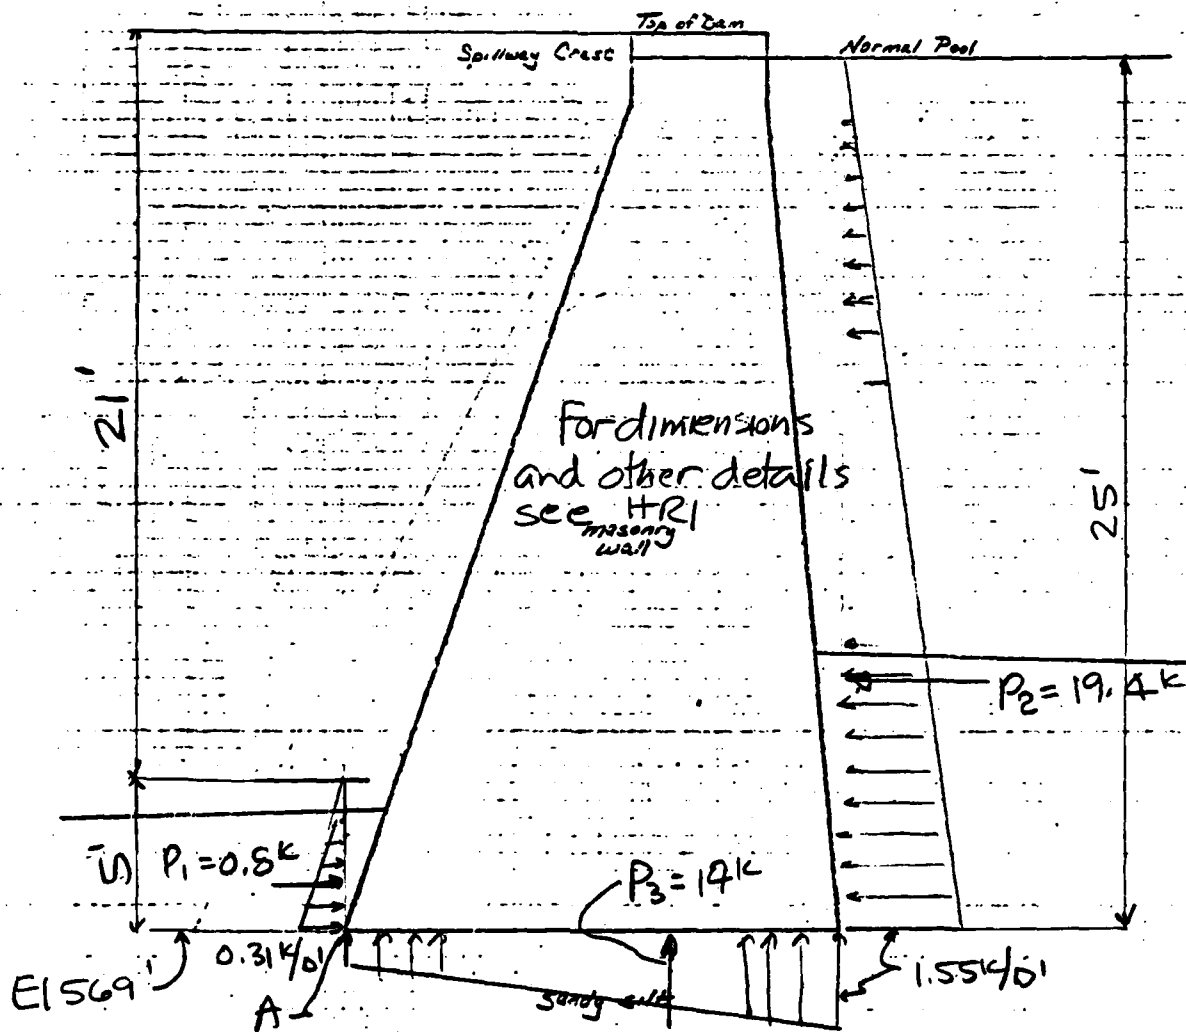 Top of Dam
Spillway Crest
Normal Pool
21'
25'
For dimensions
and other details
see HR1
masonry
wall
P₂ = 19.4ᵏ
5'
P₁ = 0.8ᵏ
P₃ = 14ᵏ
0.31ᵏ/□'
1.55ᵏ/□'
El 569'
A
Sandy silt